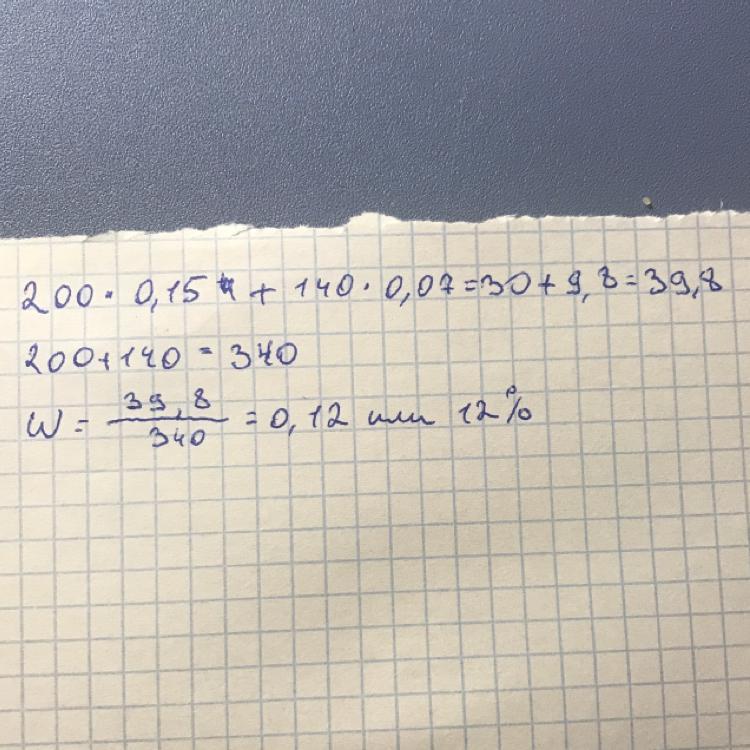 200 · 0,15 + 140 · 0,07 = 30 + 9,8 = 39,8
200 + 140 = 340
W = 39,8 / 340 = 0,12 или 12%